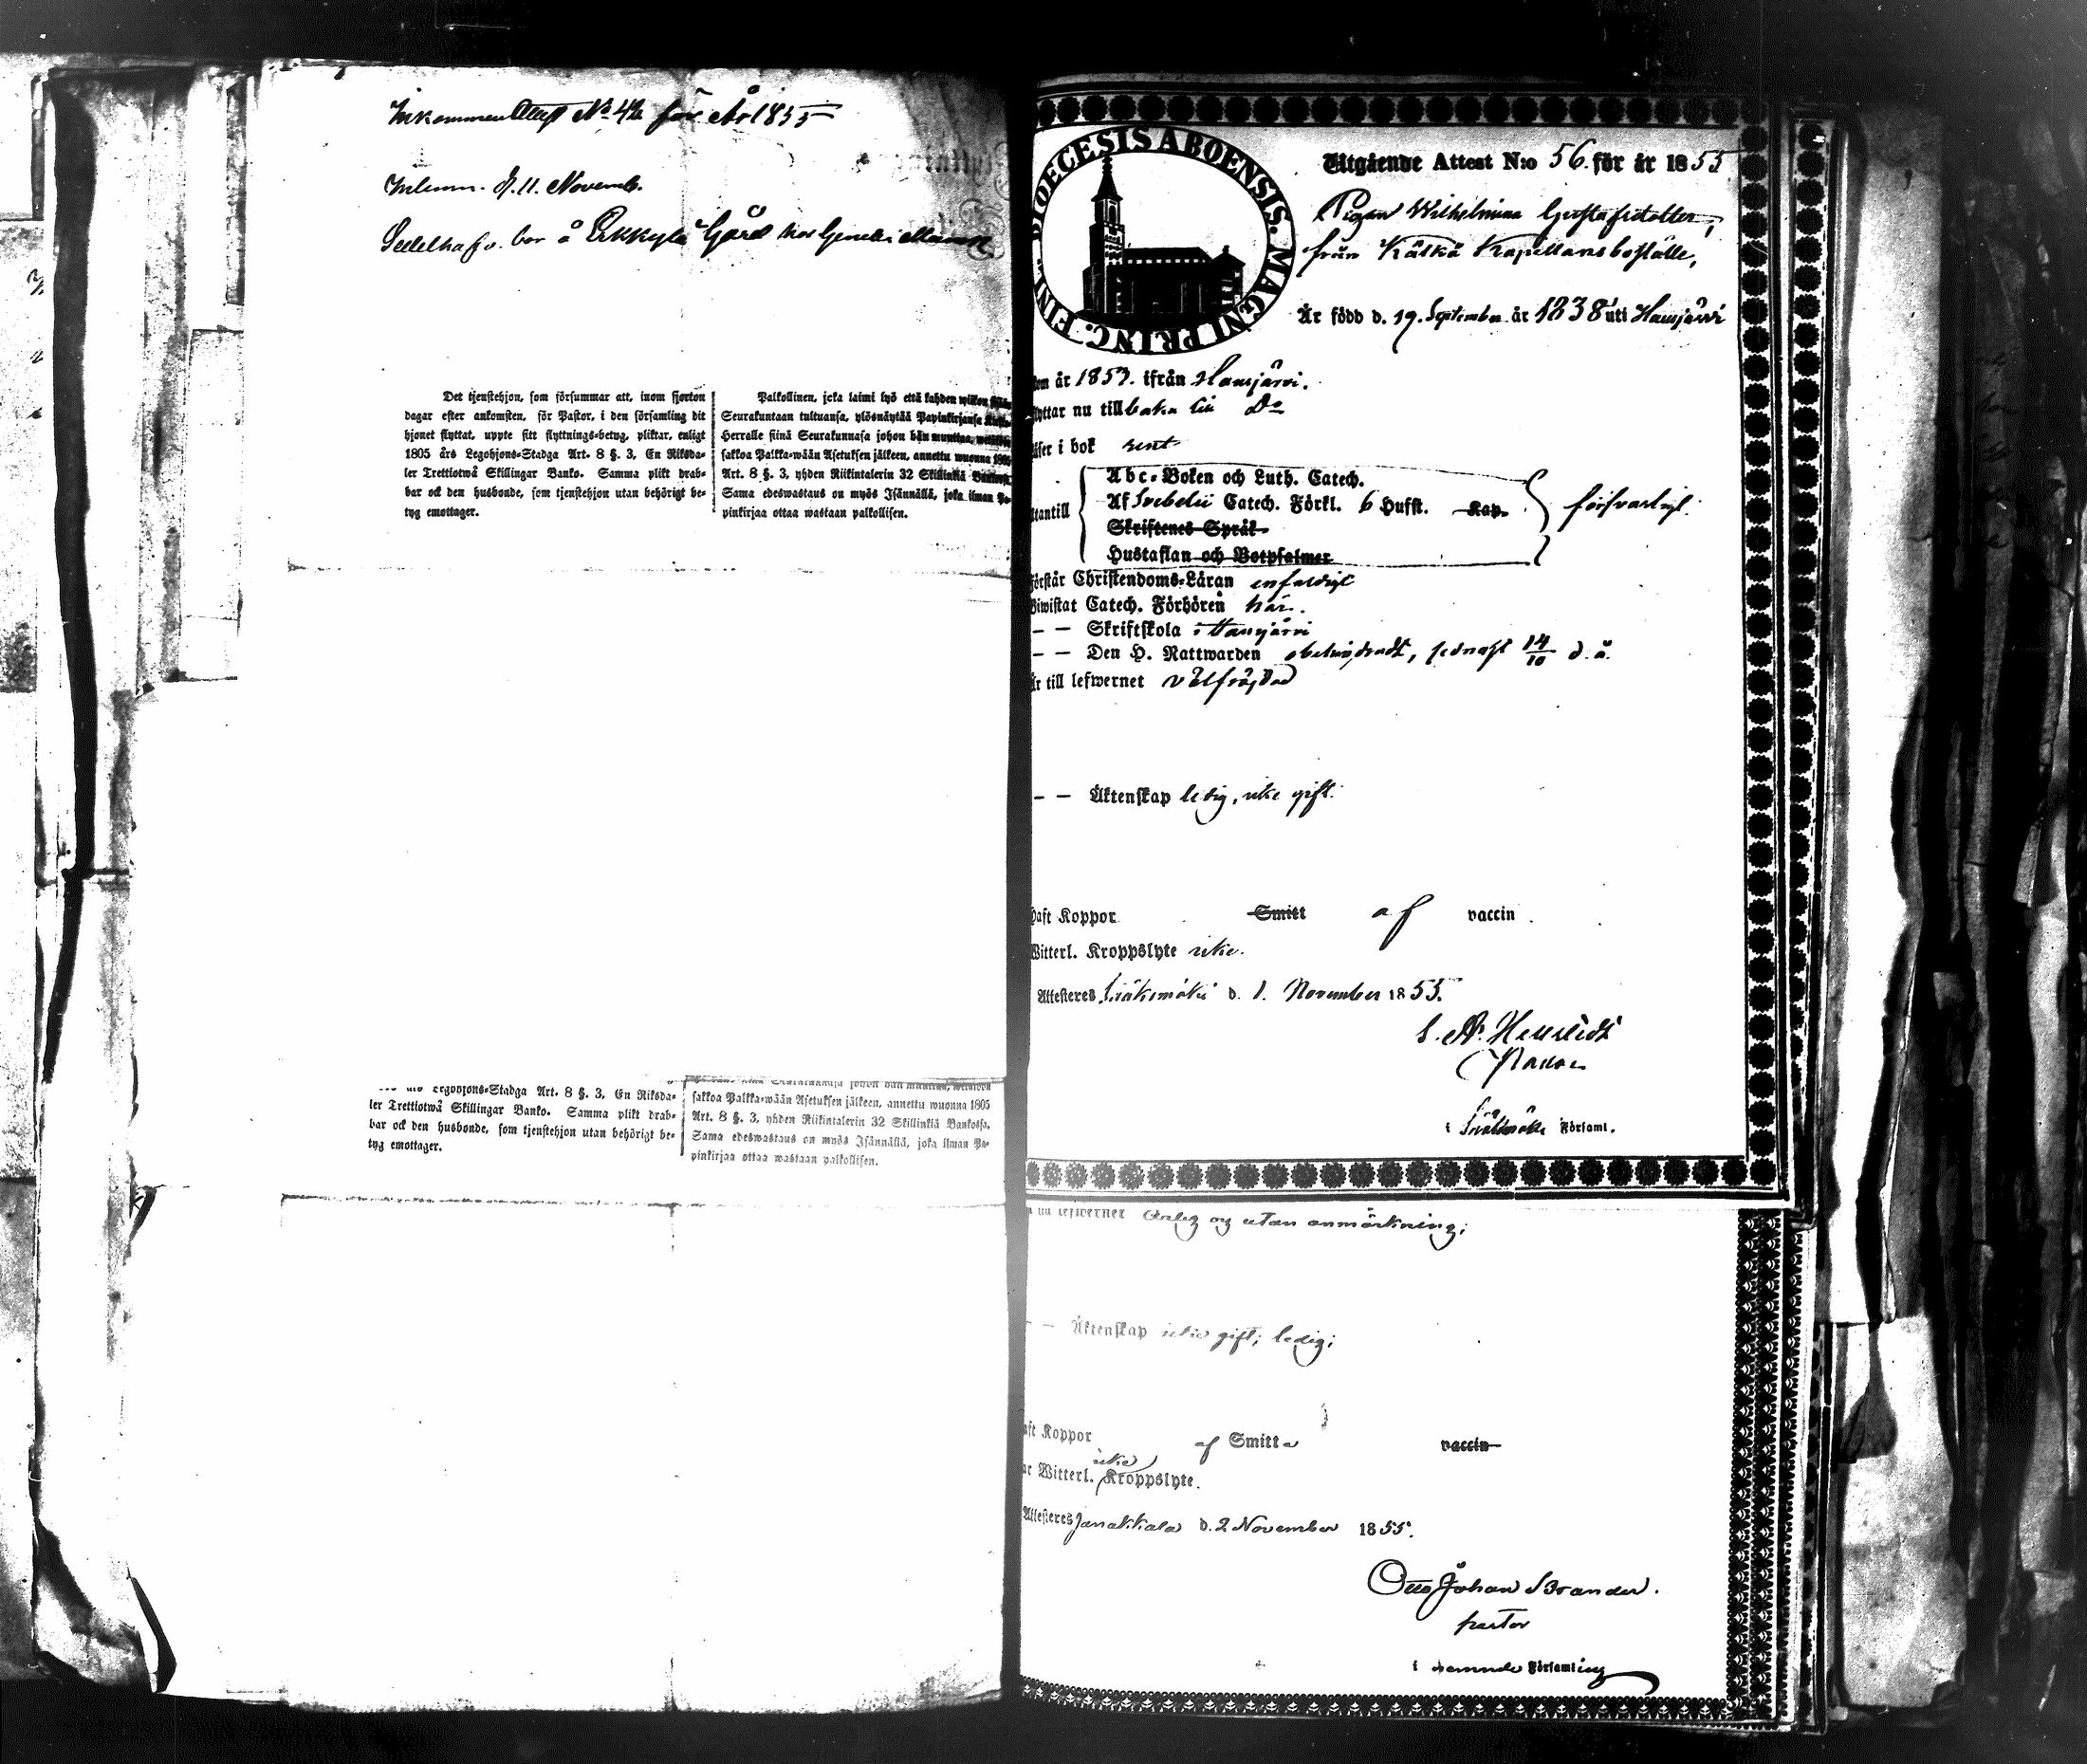 Inkommen Attest No 42 för År 1855
Inlemn. d. 11. Novemb.
Sedelhafv. bor å Erkkylä Gård hos
Det tjenstehjon, som försummar att, inom fjorton
dagar efter ankomsten, för Pastor, i den församling dit
hjonet flyttat, uppte sitt flyttnings-betyg, pliktar, enligt
1805 års Legohjons-Stadga Art. 8 §. 3, En Riksda-
ler Trettiotwå Skillingar Banko. Samma plikt drab-
bar ock den husbonde, som tjenstehjon utan behörigt be-
tyg emottager.
Palkollinen, joka laimi lyö että kahden wiikon
Seurakuntaan tultuansa, ylösnäytää Papinkirjansa
Herralle siinä Seurakunnasa johon hän muuttaa,
sakkoa Palkka-wään Asetuksen jälkeen, annettu wuonna 1805
Art. 8 §. 3, yhden Riikintalerin 32 Skillinkiä Bankossa.
Sama edeswastaus on myös Isännällä, joka ilman Pa-
pinkirjaa ottaa wastaan palkollisen.
Legohjons-Stadga Art. 8 §. 3, En Riksda-
ler Trettiotwå Skillingar Banko. Samma plikt drab-
bar ock den husbonde, som tjenstehjon utan behörigt be-
tyg emottager.
Seurakunnasa johon hän muuttaa,
sakkoa Palkka-wään Asetuksen jälkeen, annettu wuonna 1805
Art. 8 §. 3, yhden Riikintalerin 32 Skillinkiä Bankossa.
Sama edeswastaus on myös Isännällä, joka ilman Pa-
pinkirjaa ottaa wastaan palkollisen.
DIOECESIS ABOENSIS. MAGNI PRINC. FINL.
Utgående Attest N:o 56. för år 1855
Pigan Wilhelmina Gustafsdotter,
från Kätkä Kapellansboställe,
Är född d. 19. September år 1838 uti Hausjärvi
kom år 1853. ifrån Hausjärvi.
flyttar nu tillbaka till Do
läser i bok rent
utantill
Abc-Boken och Luth. Catech.
Af Svebelii Catech. Förkl. 6 Hufst. Kap.
Skriftenes Språk
Hustaflan och Botpsalmer
försvarligt
Förstår Christendoms-Läran enfaldigt
Biwistat Catech. Förhören här.
— — Skriftskola i Hausjärvi
— — Den H. Nattwarden obehindradt, sednast 14/10 d. å.
Är till lefwernet välfräjdad
— — Äktenskap ledig, icke gift.
Haft Koppor Smitt af vaccin
Witterl. Kroppslyte icke.
Attesteres Sääksmäki d. 1. November 1855.
i Sääksmäki Församl.
till lefwernet ärlig og utan anmärkning;
— — Äktenskap icke gift; ledig;
Haft Koppor af Smitta vaccin
icke
Witterl. Kroppslyte.
Attesteres Janakkala d. 2 November 1855.
Otto Johan Brander.
pastor
i samma Församling